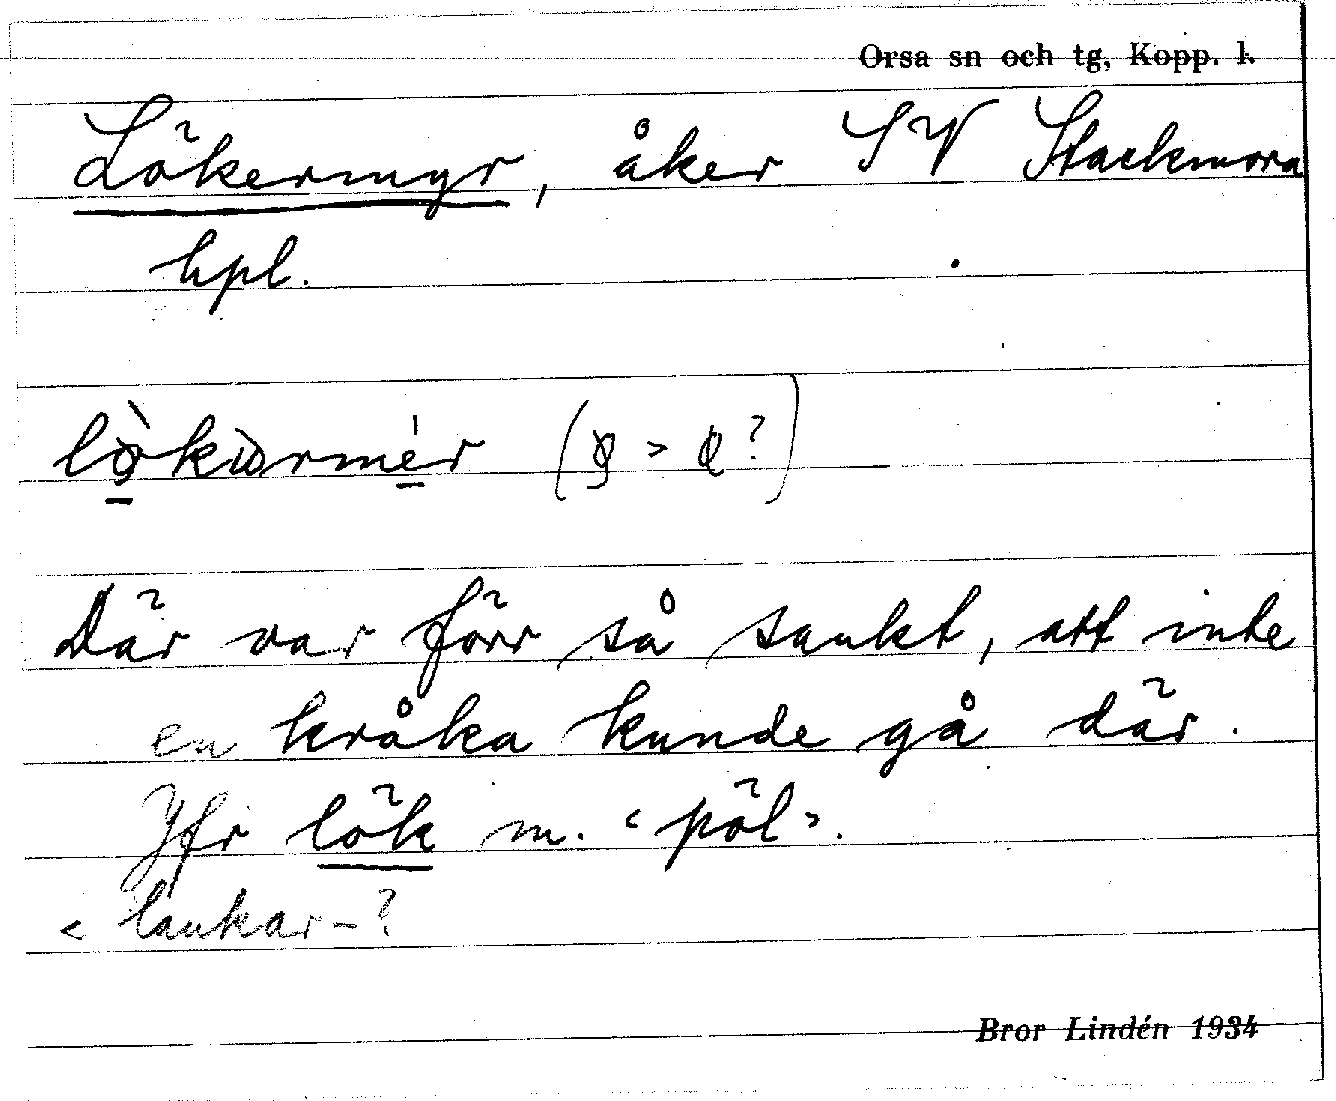 Orsa sn och tg, Kopp. l.
Lökermyr, åker SV Stackmora
hpl.
Där var förr så sankt, att inte
en kråka kunde gå där.
Jfr lök m. ‹pöl›.
< laukar-?
Bror Lindén 1934